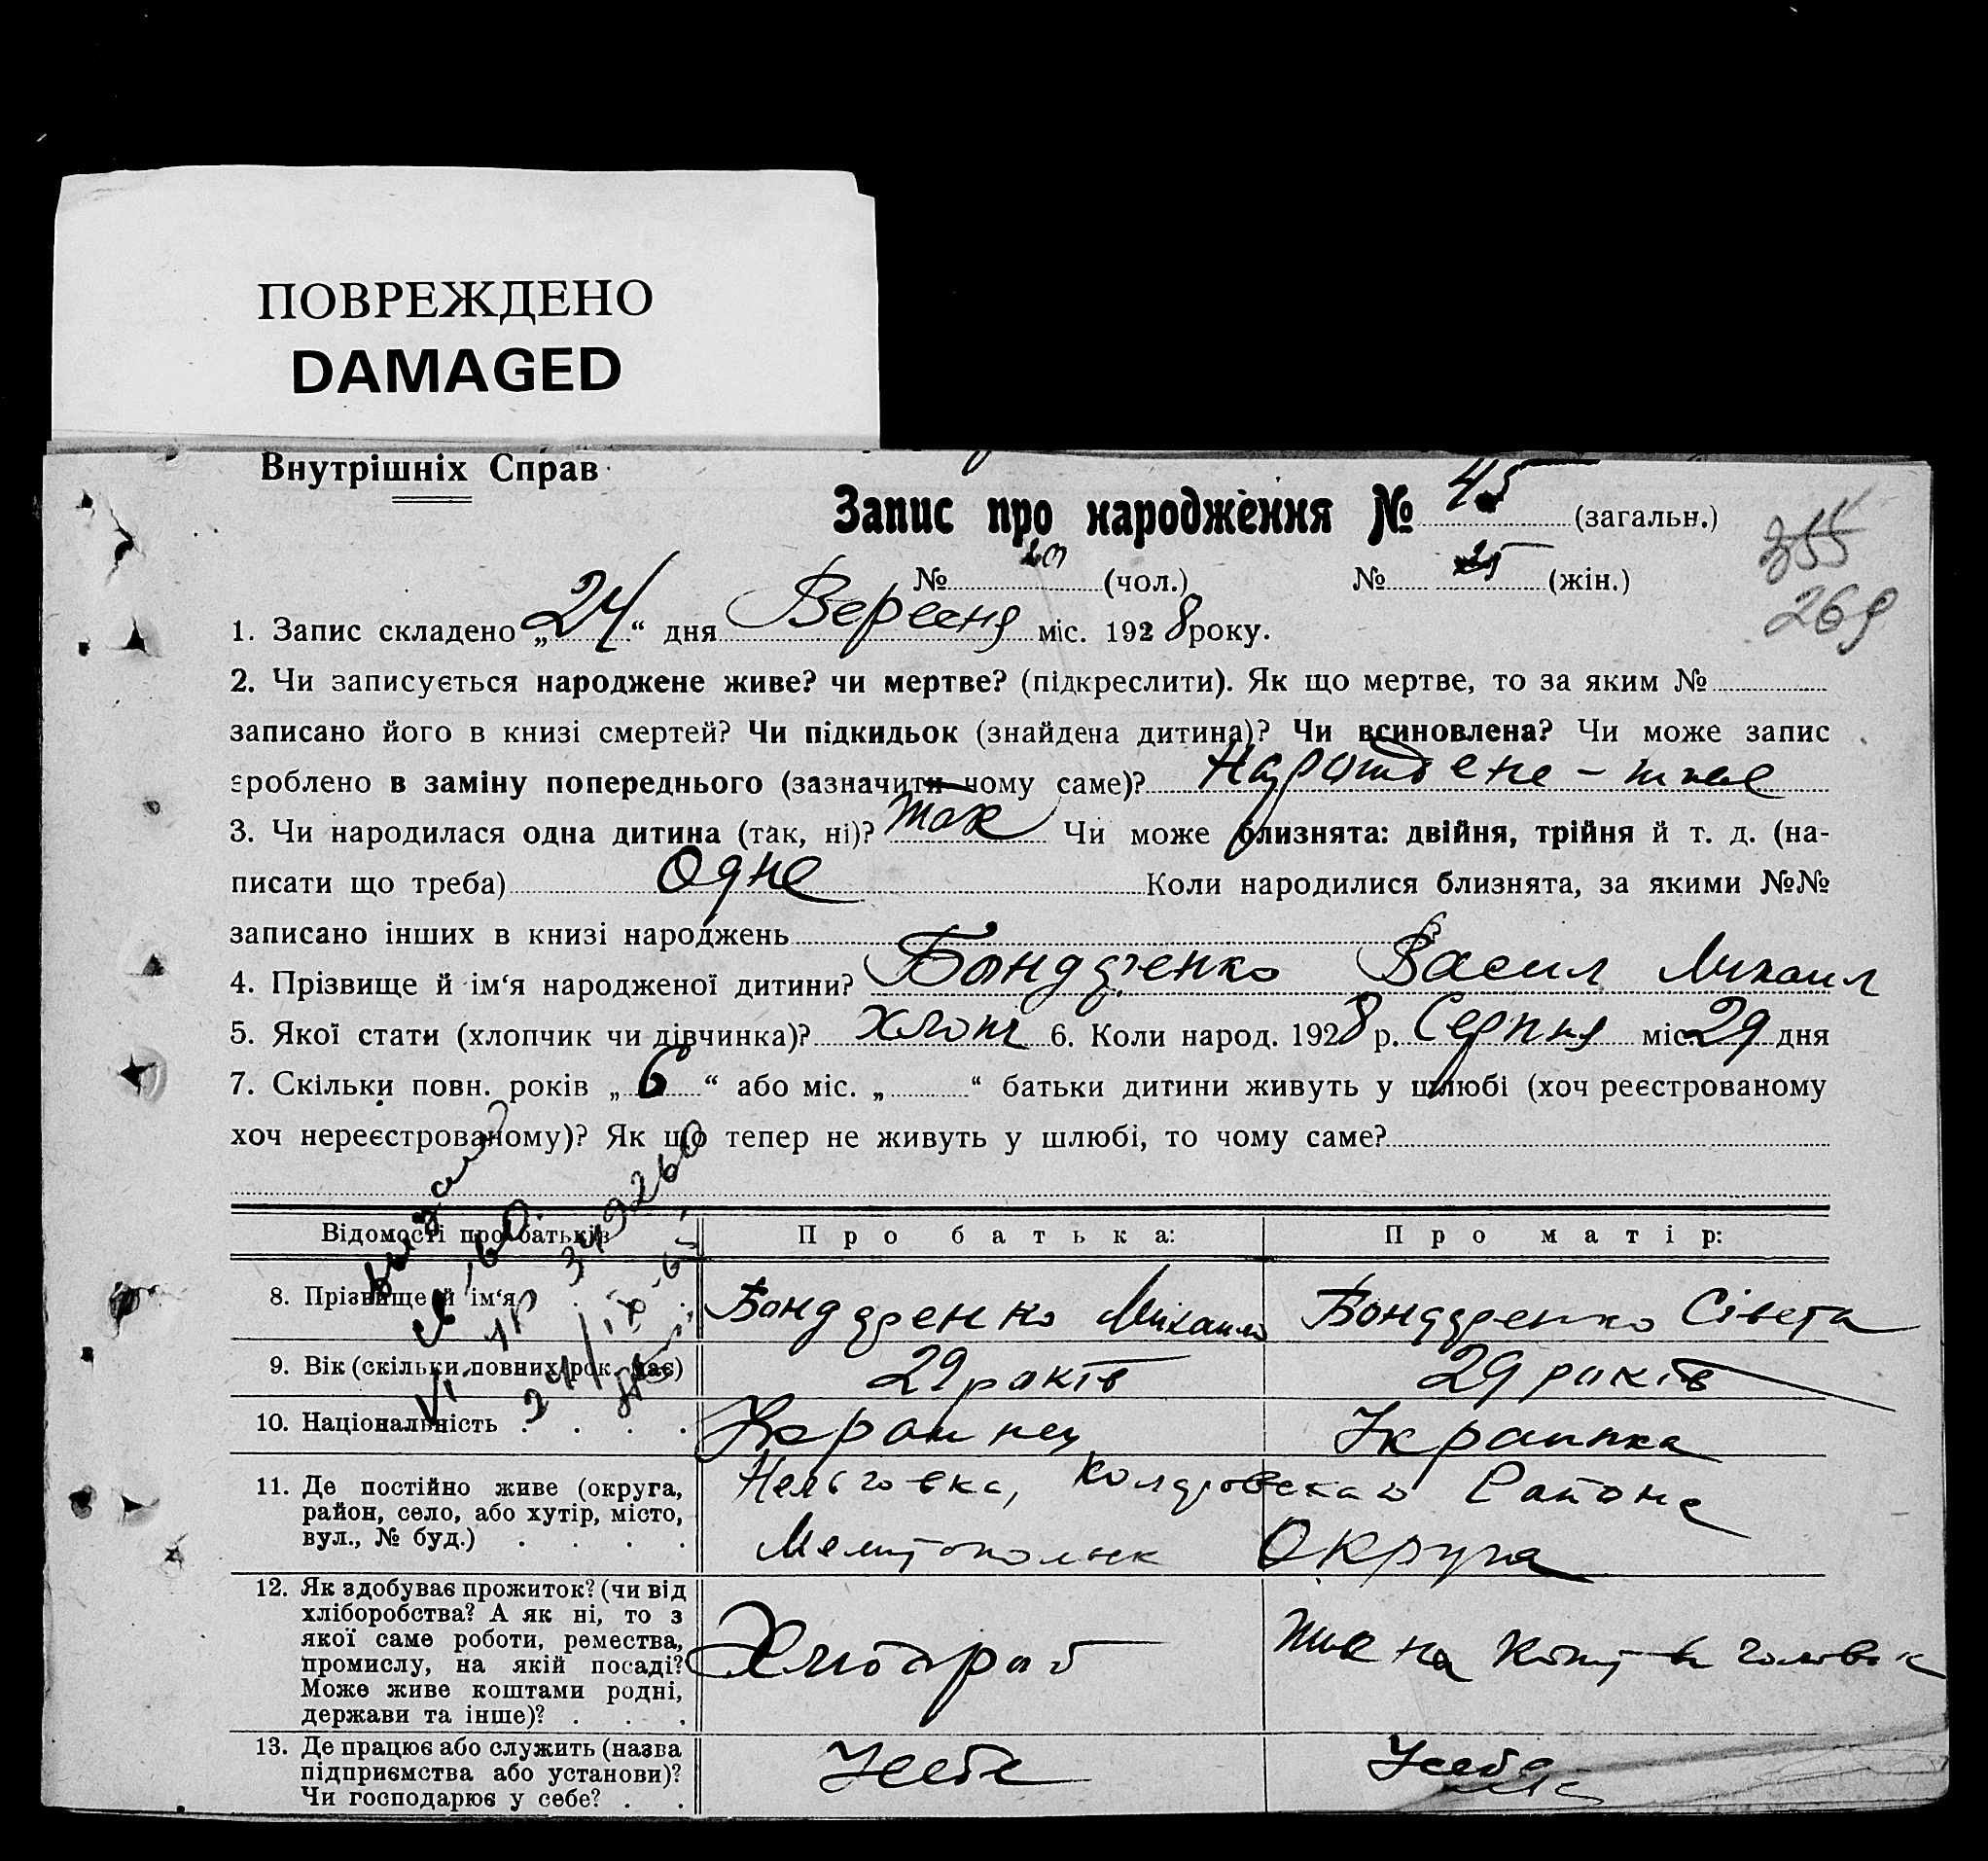 ПОВРЕЖДЕНО
DAMAGED
Внутрішніх Справ
Запис про народження № 45 (загальн.)
355
№ 20 (чол.) № 25 (жін.)
269
1. Запис складено „24“ дня Вересня міс. 1928 року.
2. Чи записується народжене живе? чи мертве? (підкреслити). Як що мертве, то за яким №
записано його в книзі смертей? Чи підкидьок (знайдена дитина)? Чи всиновлена? Чи може запис
зроблено в заміну попереднього (зазначити чому саме)?
3. Чи народилася одна дитина (так, ні)? так Чи може близнята: двійня, трійня й т. д. (на-
писати що треба) Одне Коли народилися близнята, за якими №№
записано інших в книзі народжень
4. Прізвище й ім‘я народженої дитини? Бондаренко Васил Михаил
5. Якої стати (хлопчик чи дівчинка)? хлоп 6. Коли народ. 1928 р. Серпня міс. 29 дня
7. Скільки повн. років „6“ або міс. „ “ батьки дитини живуть у шлюбі (хоч реєстрованому
хоч нереєстрованому)? Як що тепер не живуть у шлюбі, то чому саме?
Відомості про батьків Про батька: Про матір:
8. Прізвище й ім‘я . . . Бондаренко Михаило Бондаренко
9. Вік (скільки повних рок. має) 29 років 29 років
10. Національність . . . . Украинец Украинка
11. Де постійно живе (округа,
район, село, або хутір, місто,
вул., № буд.) . . . .
Нельговка, Района
Округа
12. Як здобуває прожиток? (чи від
хліборобства? А як ні, то з
якої саме роботи, ремества,
промислу, на якій посаді?
Може живе коштами родні,
держави та інше)? . . .
Хлібороб
13. Де працює або служить (назва
підприємства або установи)?
Чи господарює у себе? . .
Усебе Усебе